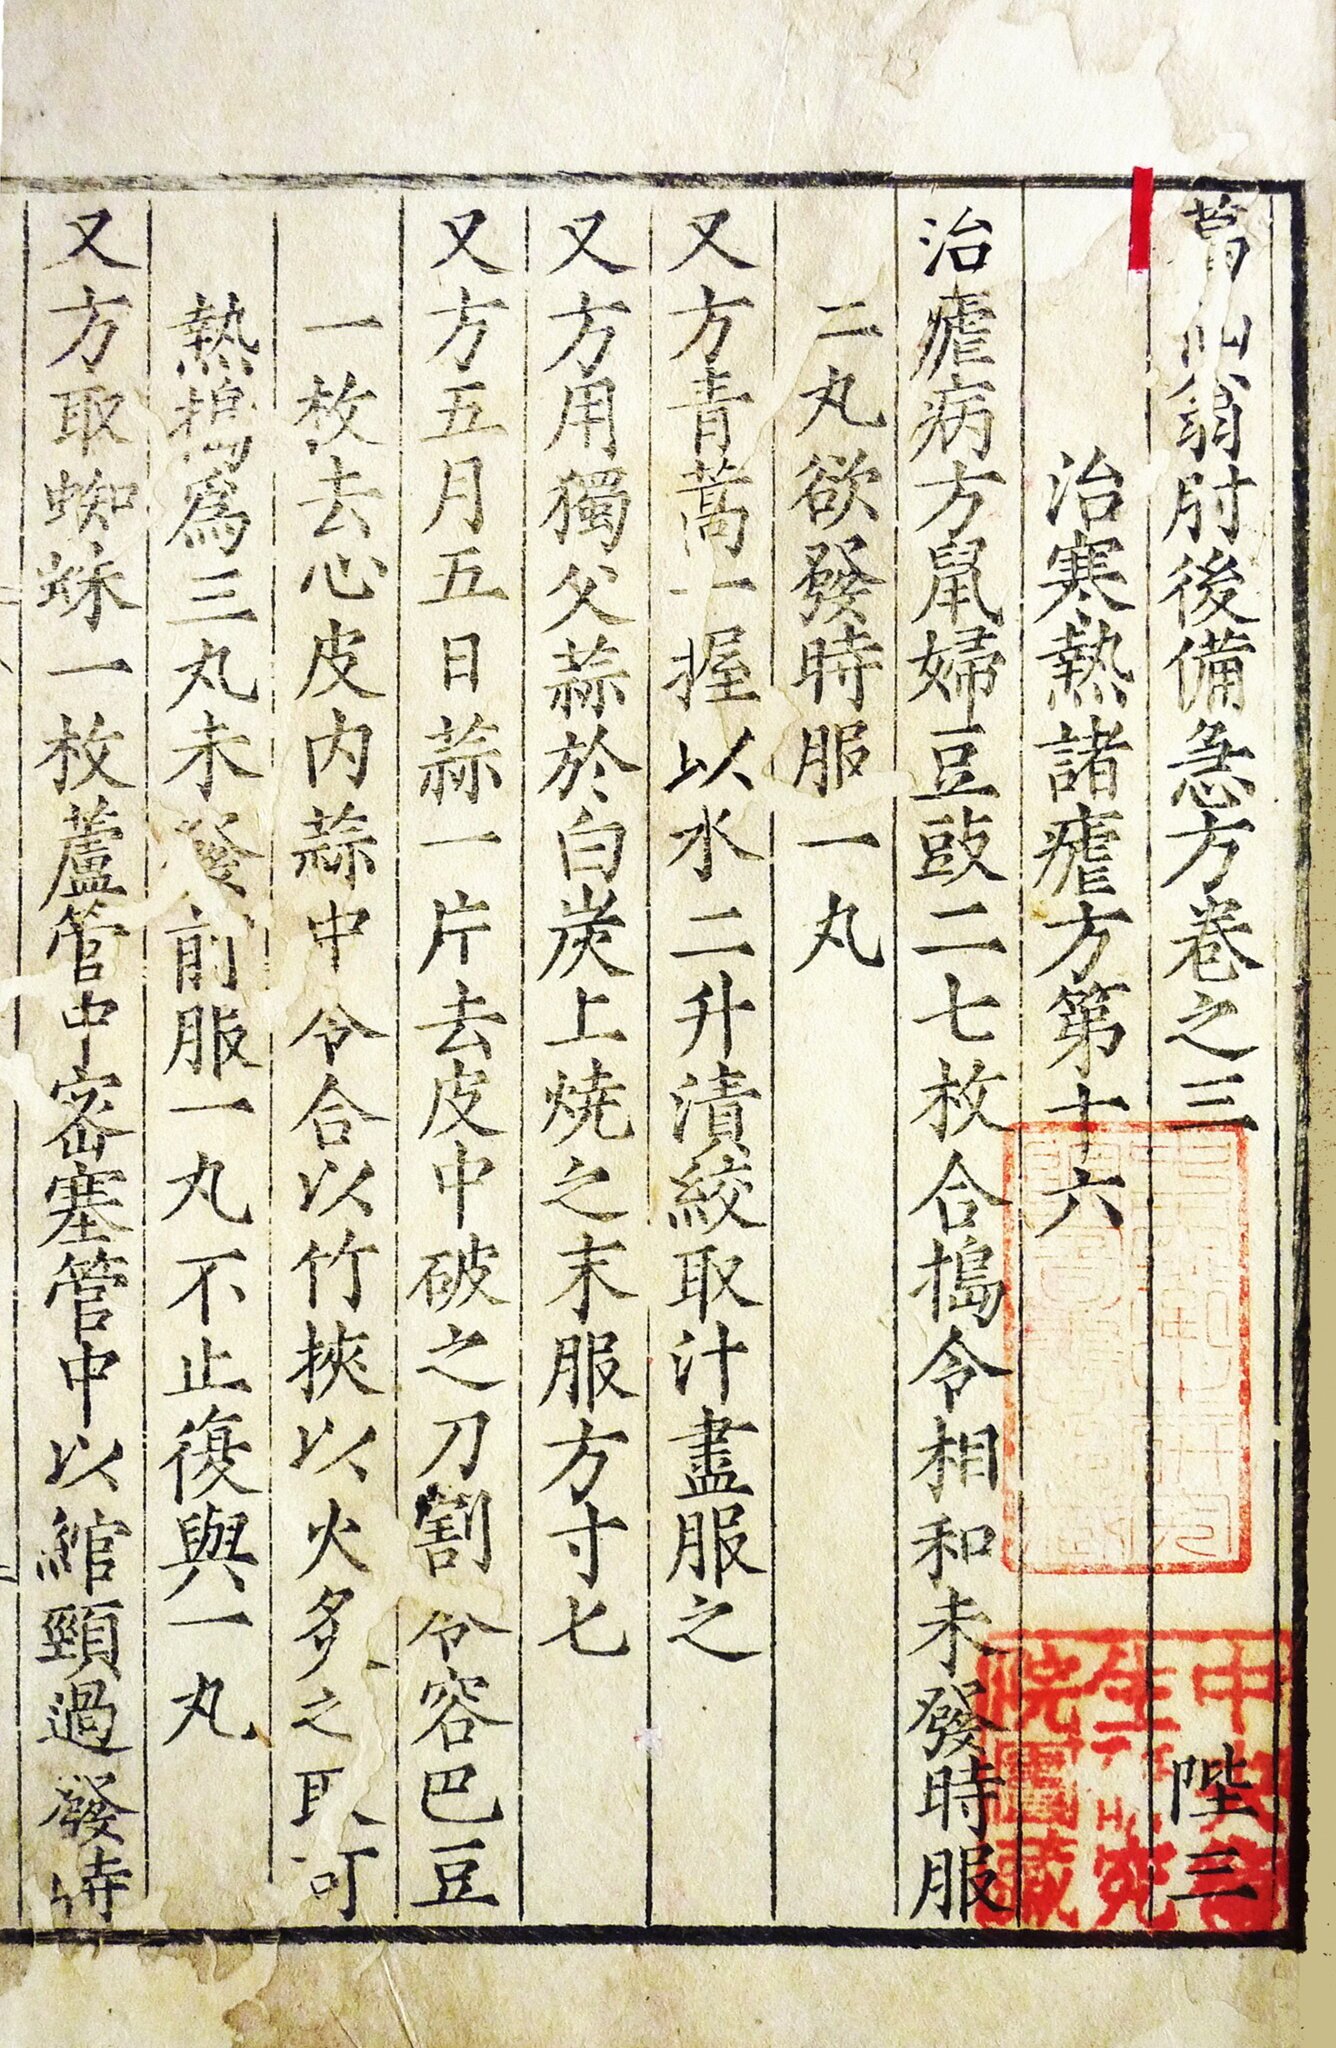 葛仙翁肘後備急方卷之三　陛三
治寒熱諸瘧方第十六
治瘧病方鼠婦豆豉二七枚合搗令相和未發時服
二丸欲發時服一丸
又方青蒿一握以水二升漬絞取汁盡服之
又方用獨父蒜於白炭上燒之末服方寸七
又方五月五日蒜一片去皮中破之刀割令容巴豆
一枚去心皮內蒜中令合以竹挾以火炙之取可
熱搗爲三丸未發前服一丸不止復與一丸
又方取蜘蛛一枚蘆管中密塞管中以綰頸過發時